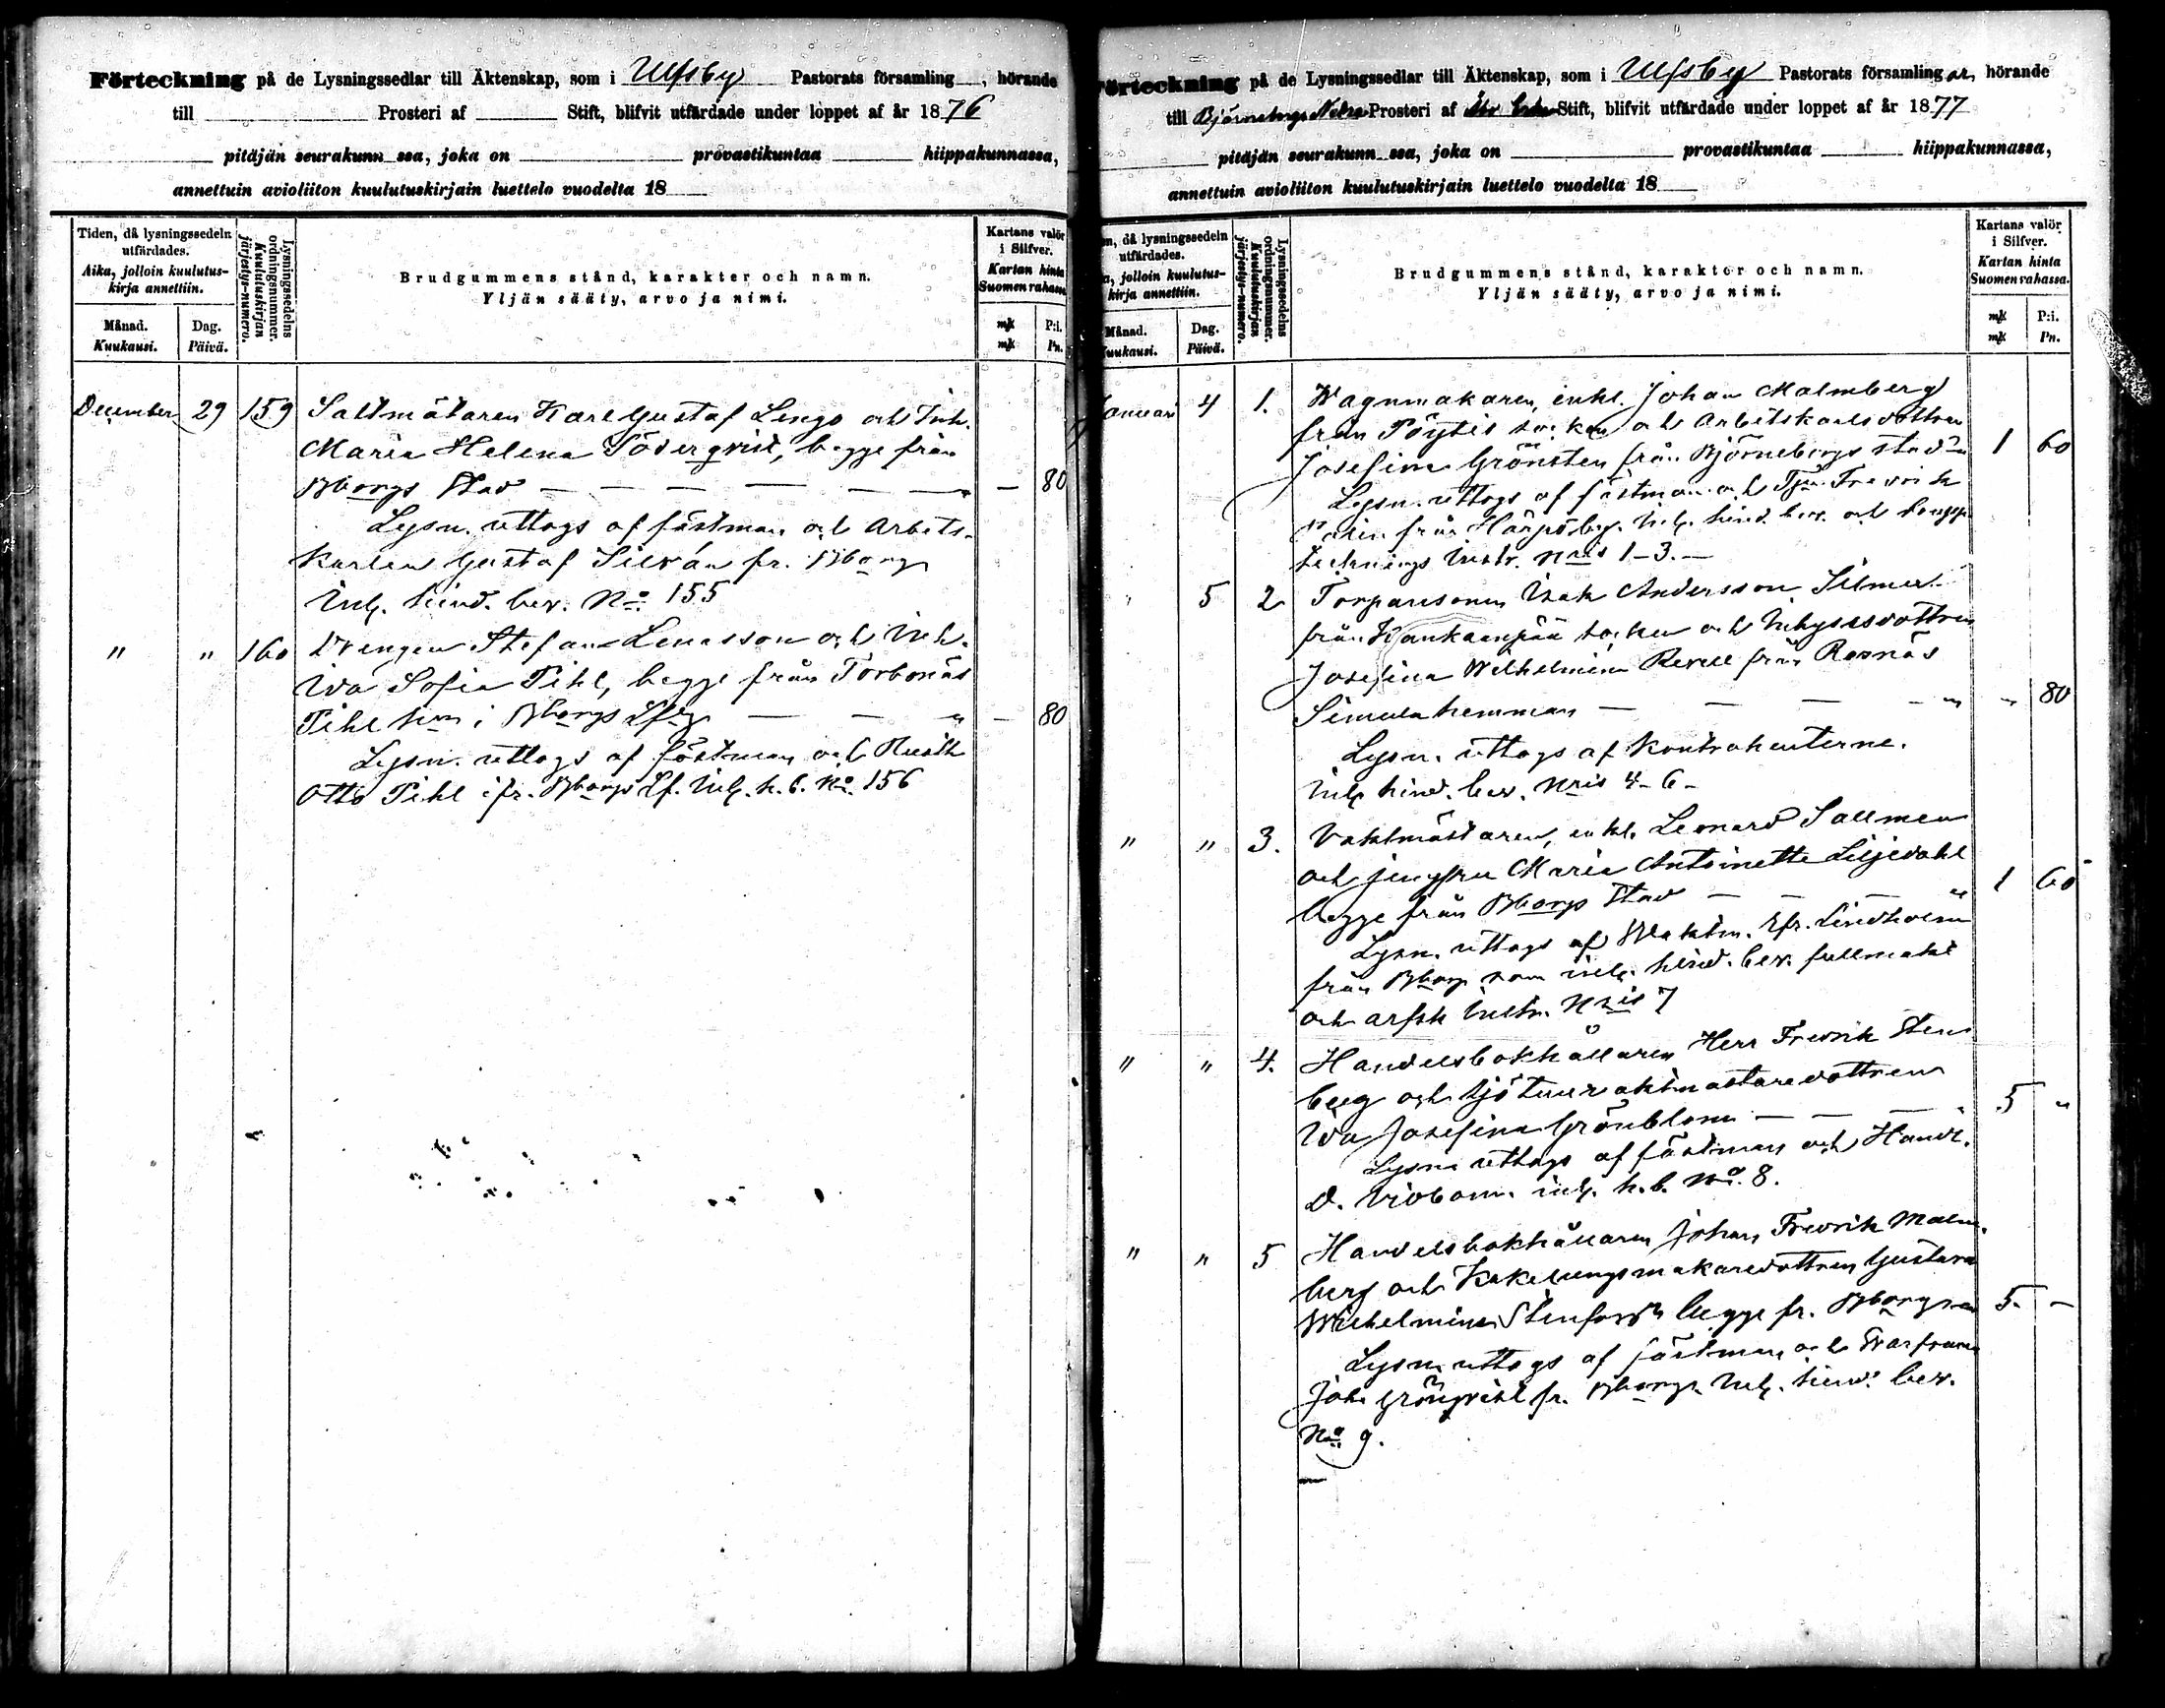 Förteckning på de Lysningssedlar till Äktenskap, som i Ulfsby Pastorats församling , hörande
till Prosteri af Stift, blifvit utfärdade under loppet af år 1876
pitäjän seurakunn ssa, joka on provastikuntaa hiippakunnassa,
annettuin avioliiton kuulutuskirjain luettelo vuodelta 18
Tiden, då lysningssedeln utfärdades.
Aika, jolloin kuulutuskirja annettiin.
Månad.
Kuukausi.
Dag.
Päivä.
Lysningssedelns ordningsnummer.
Kuulutuskirjan järjestys-numero.
Brudgummens stånd, karakter och namn.
Yljän sääty, arvo ja nimi.
Kartans valör i Silfver.
Kartan hinta Suomen rahassa.
mk P:i.
mk Pn.
December 29 159 Saltmätaren Karl Gustaf Lengo och Inh.
Maria Helena Söderqvist, begge från
Bborgs Stad — — — — — — " — 80
Lysn. uttogs af fästman och Arbets-
karlen Gustaf Silván fr. Bborg
Inlg. hind. bev. No. 155
" " 160 Drengen Stefan Lenasson och Inh.
Ida Sofia Pihl, begge från Torbonäs
Pihl hmn i Bborgs Lfg — — " — 80
Lysn. uttogs af fästman och Rusth
Otto Pihl ifr. Bborgs Lf. Inlg. h. b. No. 156
Förteckning på de Lysningssedlar till Äktenskap, som i Ulfsby Pastorats församlingar, hörande
till Björneborgs Nedre Prosteri af Åbo Erke Stift, blifvit utfärdade under loppet af år 1877
pitäjän seurakunn ssa, joka on provastikuntaa hiippakunnassa,
annettuin avioliiton kuulutuskirjain luettelo vuodelta 18
n, då lysningssedeln utfärdades.
a, jolloin kuulutuskirja annettiin.
Månad.
Kuukausi.
Dag.
Päivä.
Lysningssedelns ordningsnummer.
Kuulutuskirjan järjestys-numero.
Brudgummens stånd, karakter och namn.
Yljän sääty, arvo ja nimi.
Kartans valör i Silfver.
Kartan hinta Suomen rahassa.
mk P:i.
mk Pn.
Januari 4 1. Wagnmakaren, enkl. Johan Malmberg
från Pöytis socken och Arbetskarlsdottren
Josefina Grönsten från Björneborgs stad " 1 60
Lysn. uttogs af fästman och Tjen. Fredrik
från Härpöby. Inlg. hind. bev. och boupp-
tecknings Instr. Nris 1-3. —
" 5 2 Torparesonen Isak Andersson
från Kankaanpää socken och Inhysesdottren
Josefina Wilhelmina Revell från Rosnäs
Simula hemman — — — — " " 80
Lysn. uttogs af kontrahenterne.
Inlg hind. bev. Nris 4-6-
" " 3. Vaktmästaren, enkl. Leonard Sallmen
och jungfru Maria Antoinette Liljedahl
begge från Bborgs Stad — — — " 1 60
Lysn. uttogs af Waktm. Lindholm
från Bborg som inlg. hind. bev. fullmakt
och arfsk Instr. Nris 7
" " 4. Handelsbokhållaren Herr Fredrik Sten
berg och Sjötullvaktmästaredottren
Ida Josefina Grönblom — — — " 5 "
Lysn uttogs af fästman och Handl.
D. inlg. h. b. No. 8.
" " 5 Handelsbokhållaren Johan Fredrik Malm-
berg och Kakelungsmakaredottren Gustava
Wilhelmina Stenfors begge fr. Bborgs 5. —
Lysn uttogs af fästman och Svarfvaren
Joh. Grönqvist fr. Bborgs. Inlg. hind. bev.
No. 9.